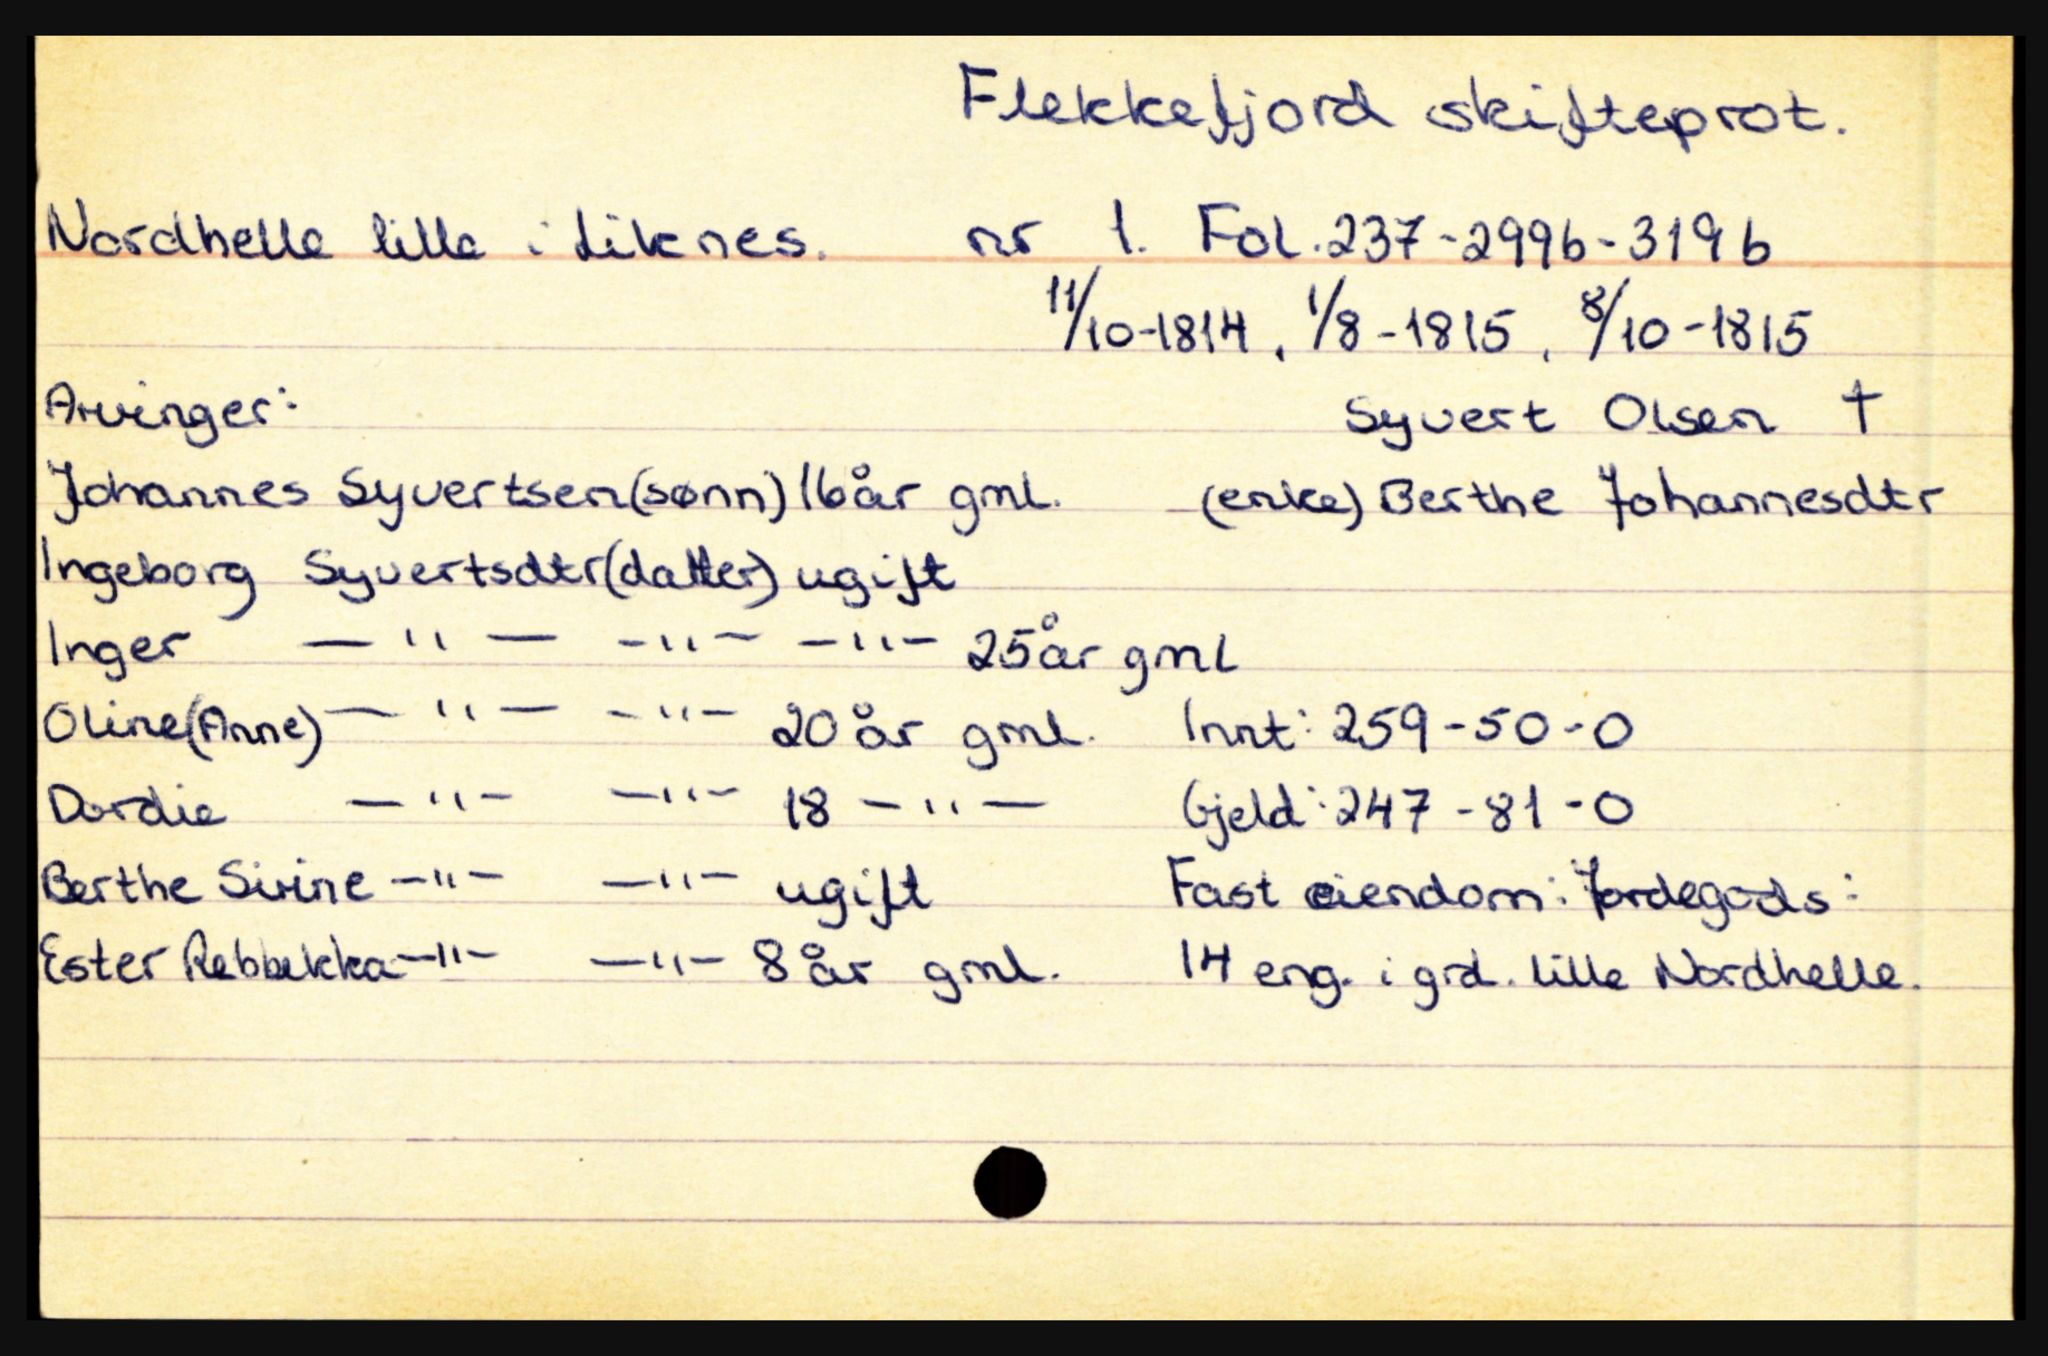 Flekkefjord skifteprot.
Nordhelle lille i Liknes. nr 1. Fol. 237-299b-319b
11/10-1814, 1/8-1815, 8/10-1815
Arvinger: Syvert Olsen †
Johannes Syvertsen (sønn) 16 år gml. (enke) Berthe Johannesdtr
Ingeborg Syvertsdtr (datter) ugift
Inger —"— -"- -"- 25 år gml
Oline (Anne) —"— -"- 20 år gml. Innt: 259-50-0
Dordie —"- —"- 18 —"— Gjeld: 247-81-0
Berthe Sirine -"- —"- ugift Fast eiendom: Jordegods:
Ester Rebbekka -"- —"- 8 år gml. 14 eng. i grd. lille Nordhelle.